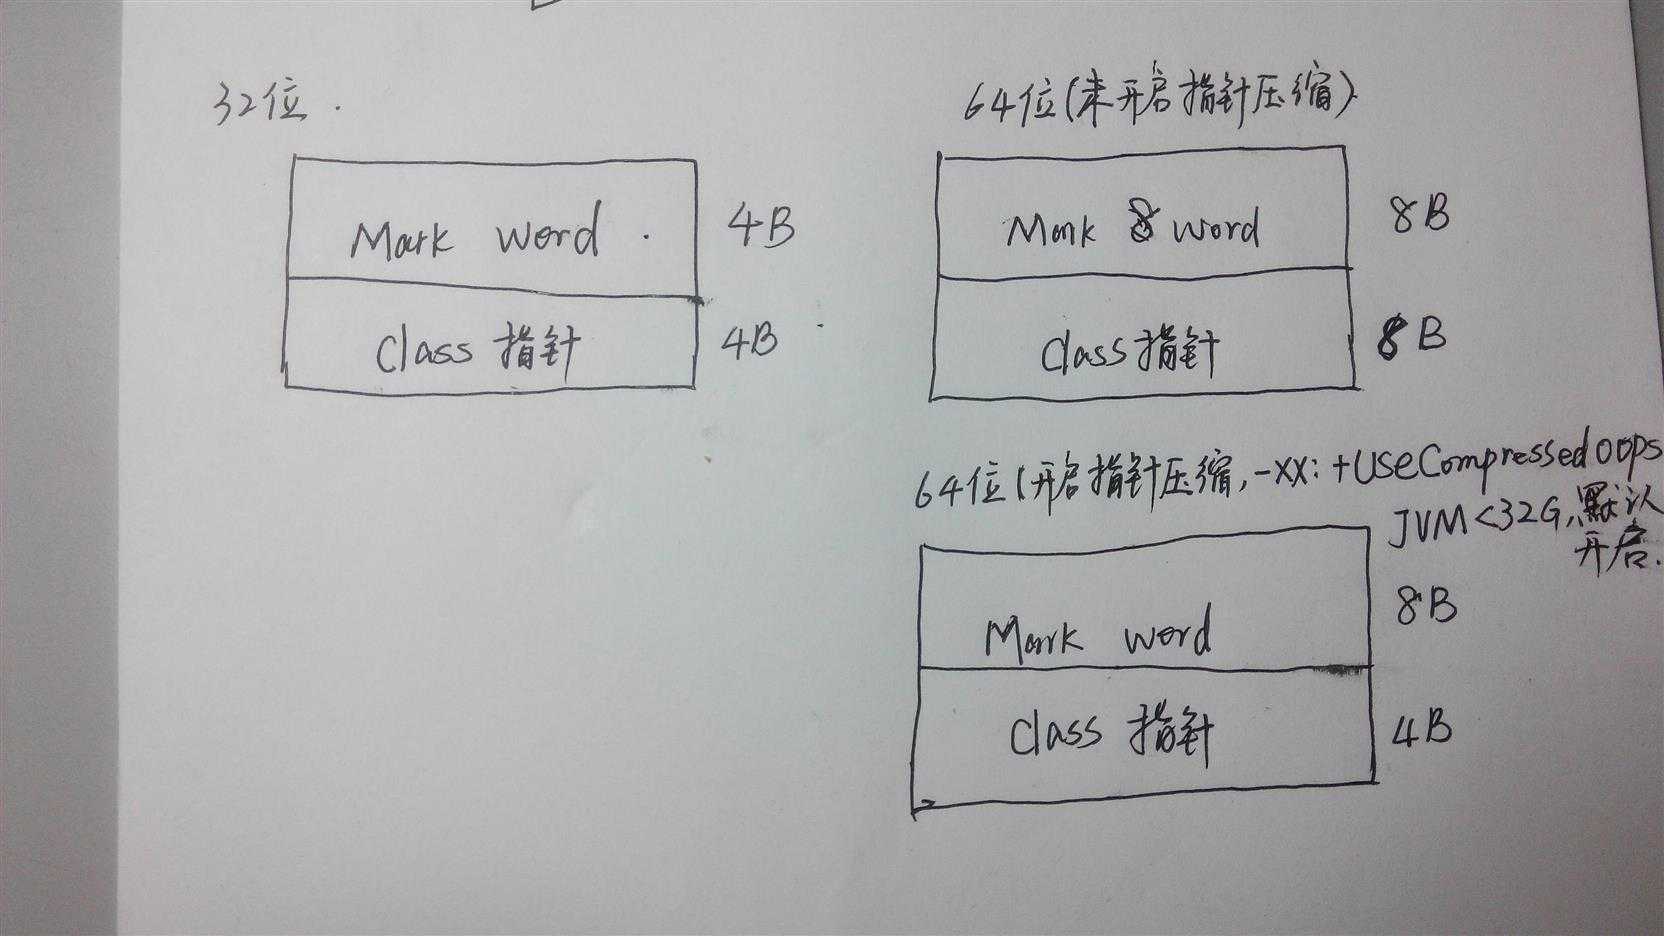 32位.
Mark word.
4B
Class 指针
4B
64位(未开启指针压缩)
Mark 8 word
8B
Class 指针
8B
64位(开启指针压缩,-XX:+UseCompressedOops
JVM<32G,默认
开启.
Mark word
8B
Class 指针
4B